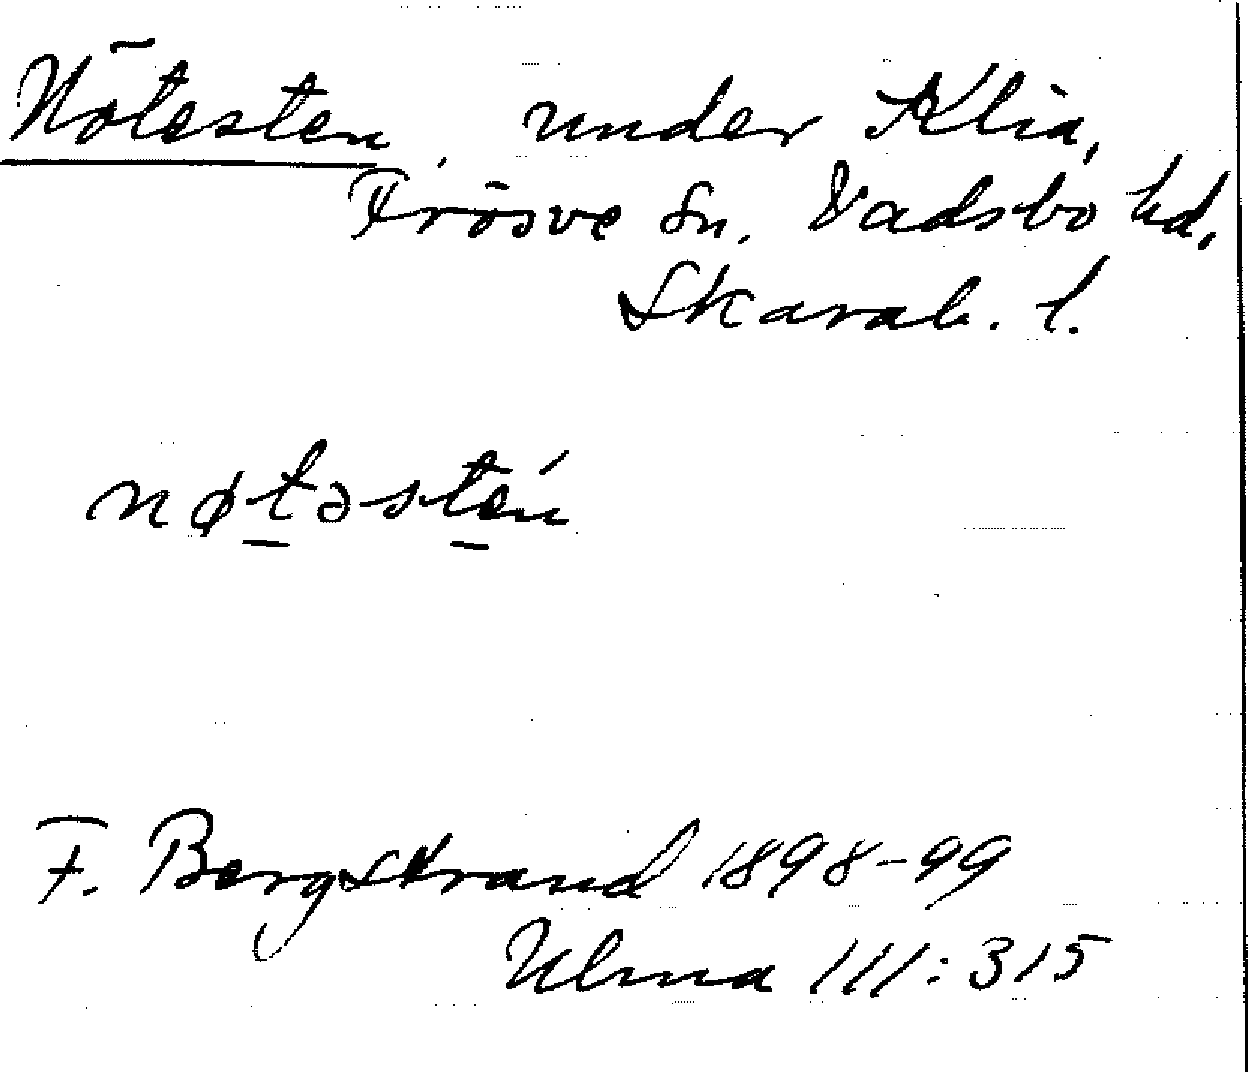 Nötesten, under Klia,
Frösve sn. Vadsbo hd,
Skarab. l.
nøtəstén
F. Bergstrand 1898-99
Ulma 111:315